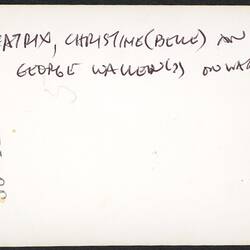 EATRIX, CHRISTINE (BELLE) AN
GEORGE WALLEN(?) ON WA